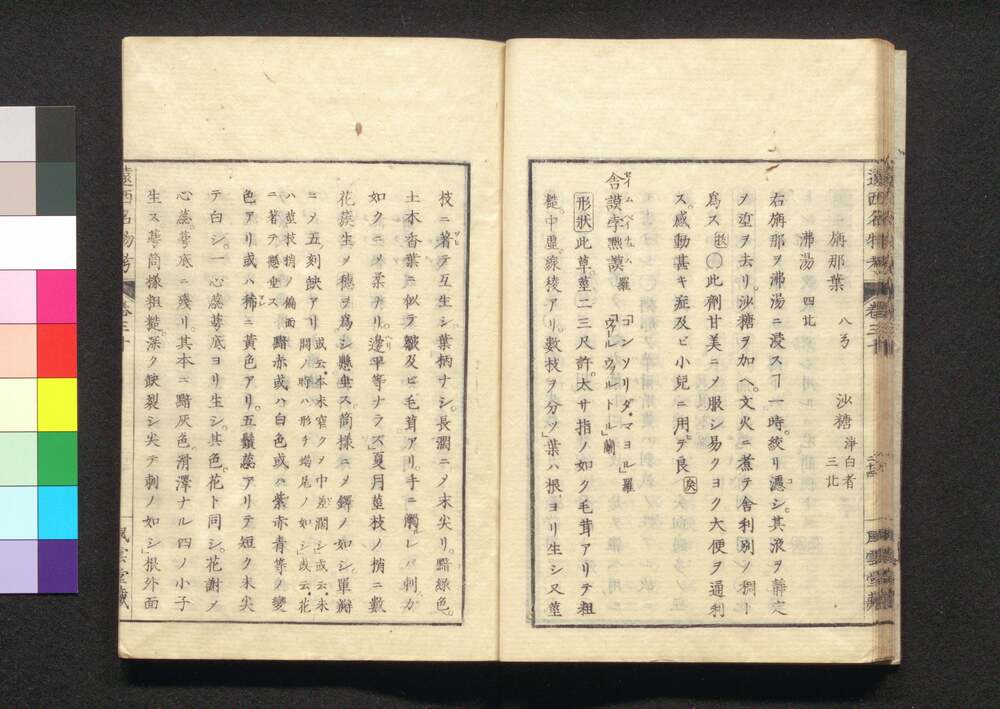 旃那葉 八ゟ 沙糖 浄白者 三𠦄
沸湯 四𠦄
右旃那ヲ沸湯ニ浸スヿ一時。絞リ濾シ。其液ヲ静定
ノ垽ヲ去リ。沙糖ヲ加ヘ。文火ニ煮テ舎利別ノ稠ト
爲ス 此劑甘美ニノ服シ易クヨク大便ヲ通利
ス。感動甚キ症及ビ小兒ニ用テ良
舎謨孛黙謨 羅 コンソリダ・マヨル 羅 ワールウヲルトル 蘭
形狀 此草莖二三尺許。太サ指ノ如ク毛茸アリテ粗
糙。中空。線稜アリ。數枝ヲ分ツ」葉ハ根ヨリ生シ又莖
枝ニ著テ互生シ。葉柄ナシ。長濶ニノ末尖リ。黯緑色。
土木香葉ニ似ラ皺及ビ毛茸アリ。手ニ觸レバ刺カ
如クニノ柔ナリ。邊平等ナラズ」夏月莖枝ノ梢ニ數
花簇生ノ穗ヲ爲シ懸垂ス。筒様ニノ鐸ノ如シ單瓣
ニノ五刻缺アリ 或云。本末窄クノ中差濶シ」或云。未開ノ時ハ形チ蝎尾ノ如シ」或云。花
ハ莖枝梢ノ偏面ニ著テ懸垂ス 黯赤或ハ白色或ハ紫赤青等ノ變
色アリ或ハ稀ニ黄色アリ。五鬚蕊アリテ短ク末尖
テ白シ。一心蕊萼底ヨリ生シ。其色。花ト同シ。花謝ノ
心蕊萼底ニ殘リ。其本ニ黯灰色。滑澤ナル四ノ小子
生ス萼筒様粗糙。深ク缺裂シ尖テ刺ノ如シ」根外面
遠西名物考 卷三十 風雲堂藏